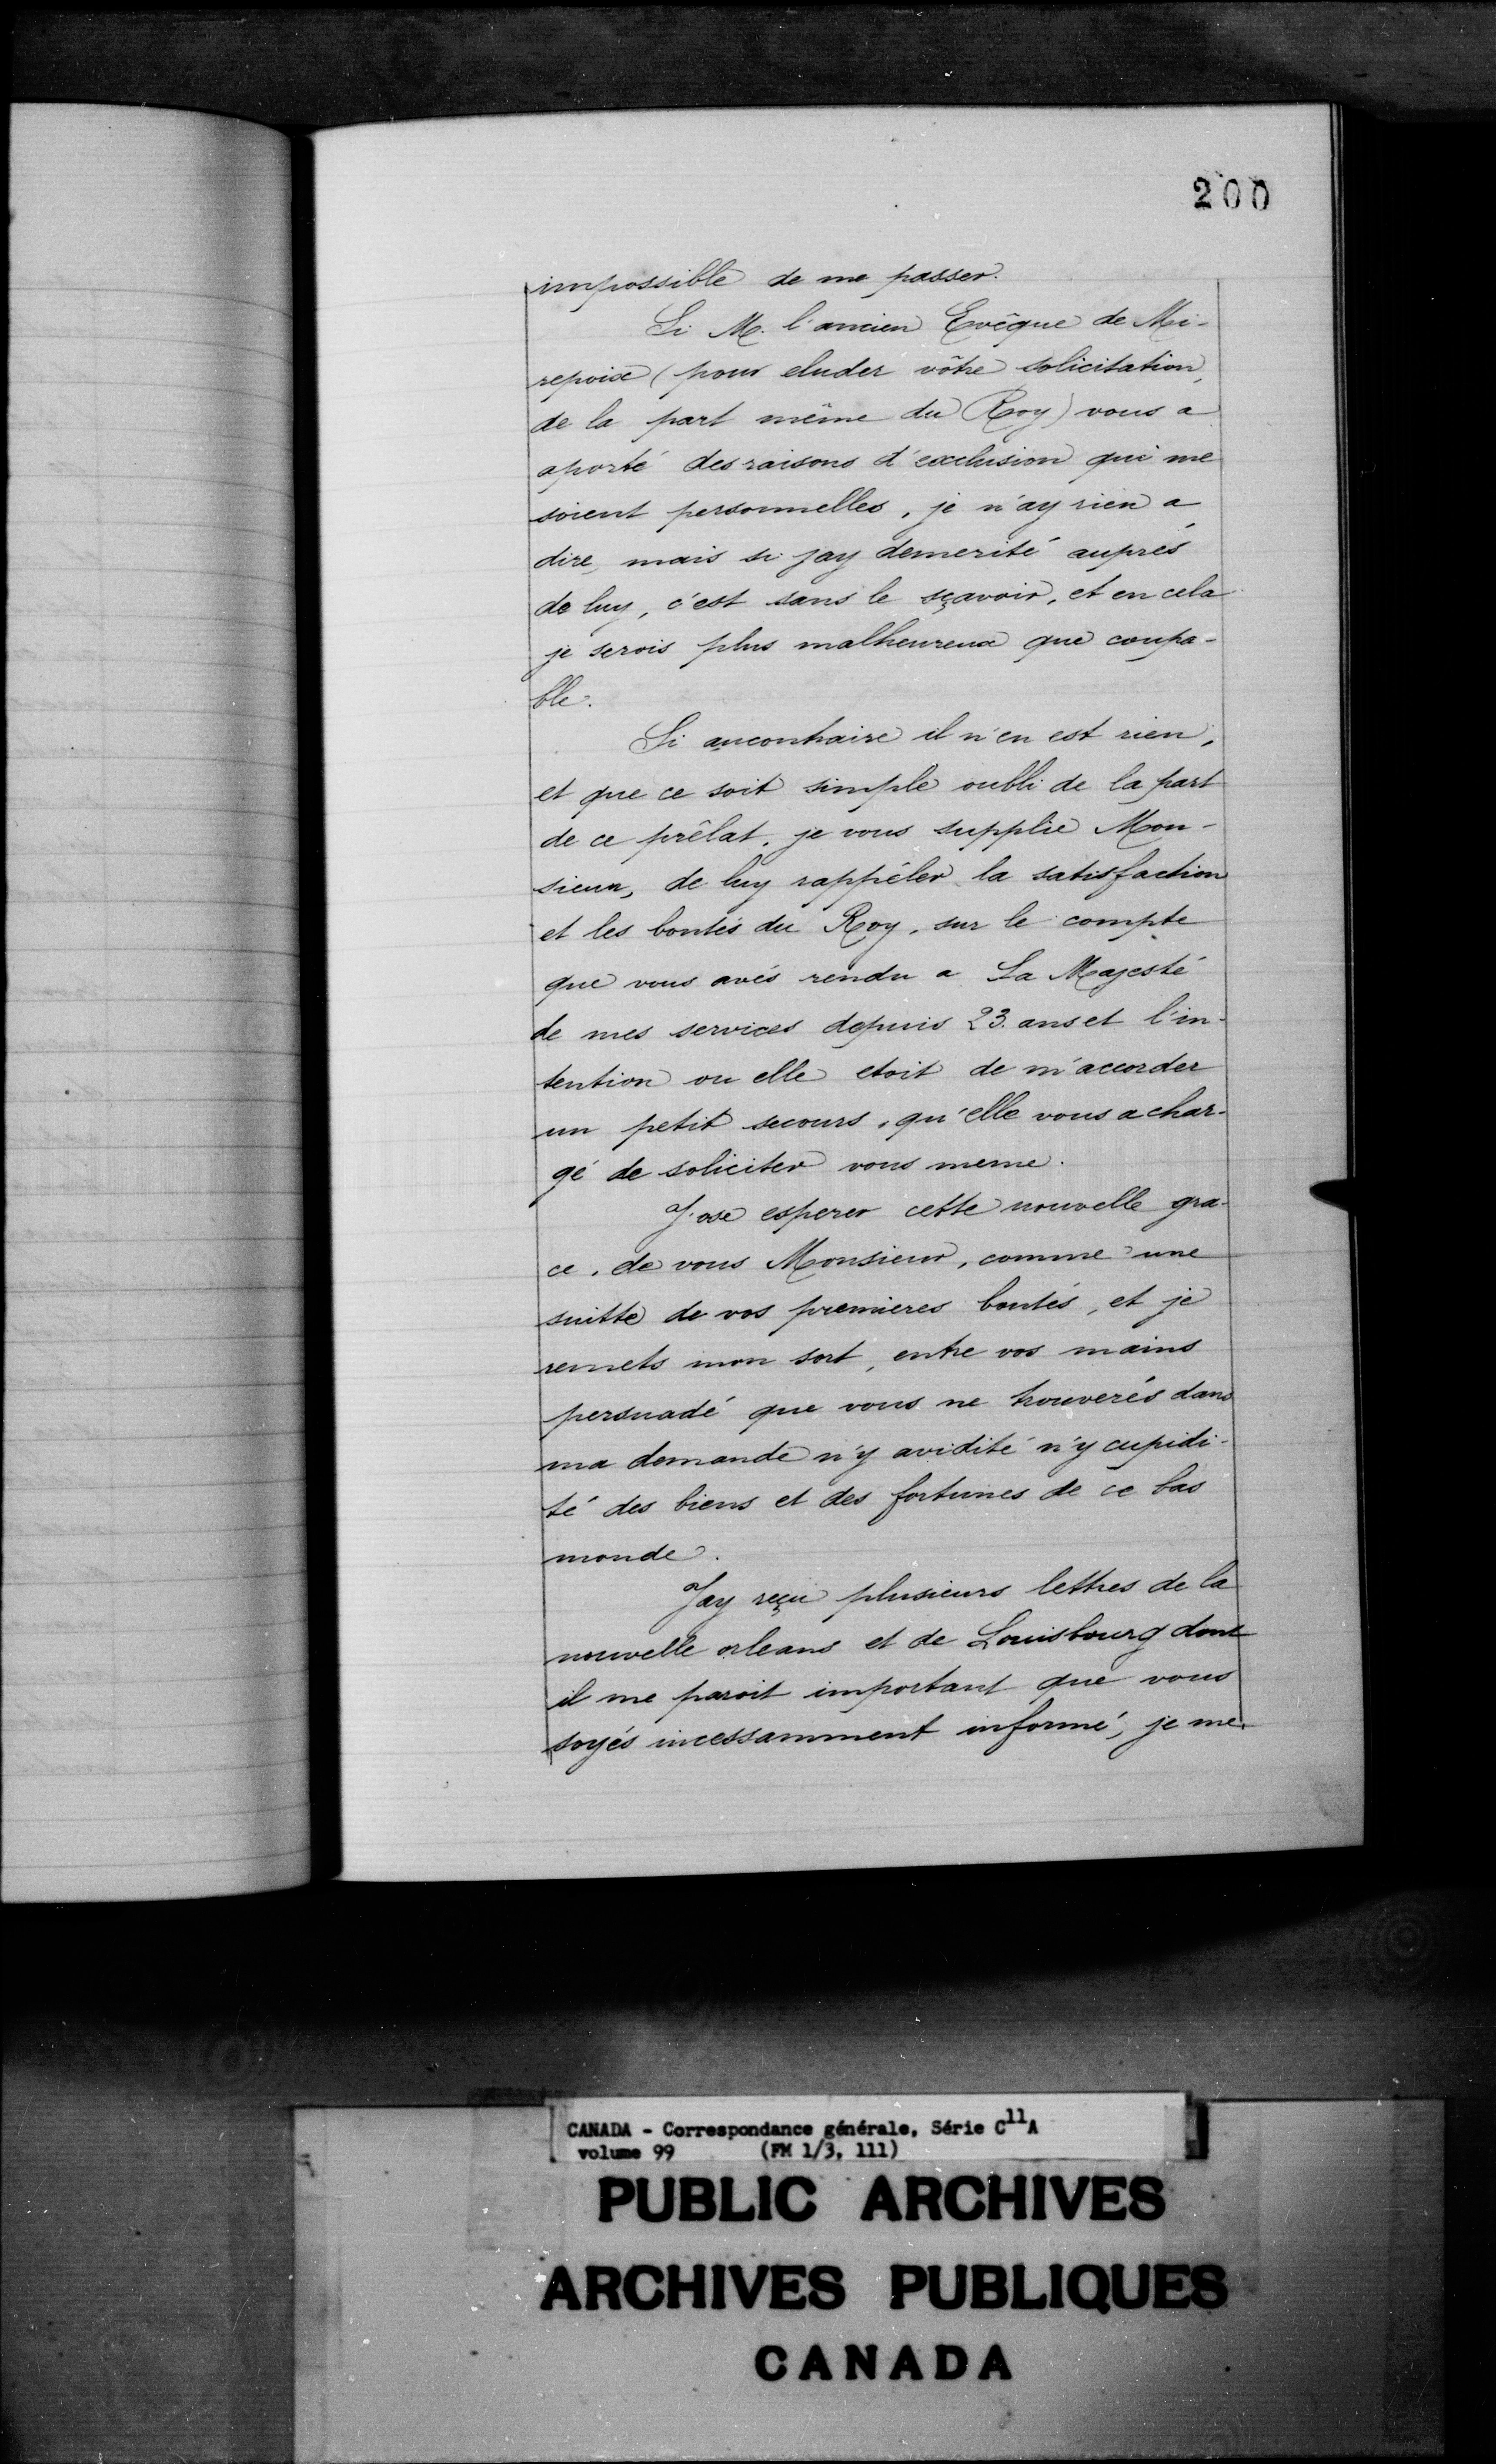 200
impossible de me passer.
Si M. l'ancien Evêque de Mi-
repoix (pour eluder vôtre solicitation,
de la part même du Roy) vous a
aporté des raisons d'exclusion qui me
soient personnelles, je n'ay rien a
dire, mais si jay demerité auprés
de luy, c'est sans le sçavoir, et en cela
je serois plus malheureux que coupa-
ble.
Si aucontraire il n'en est rien,
et que ce soit simple oubli de la part
de ce prêlat, je vous supplie Mon-
sieur, de luy rappéler la satisfaction
et les bontés du Roy, sur le compte
que vous avés rendu a Sa Majesté
de mes services depuis 23. ans et l'in-
tention ou elle etoit de m'accorder
un petit secours, qu'elle vous a char-
gé de soliciter vous meme.
J'ose esperer cette nouvelle gra-
ce, de vous Monsieur, comme une
suitte de vos premieres bontés, et je
remets mon sort, entre vos mains
persuadé que vous ne trouverés dans
ma demande n'y avidité n'y cupidi-
té des biens et des fortunes de ce bas
monde.
Jay reçu plusieurs lettres de la
nouvelle orleans et de Louisbourg dont
il me paroit important que vous
soyés incessamment informé, je me
CANADA - Correspondance générale, Série C11A
volume 99 (FM 1/3, 111)
PUBLIC ARCHIVES
ARCHIVES PUBLIQUES
CANADA